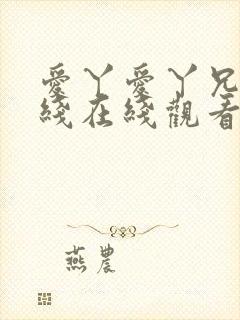 愛丫愛丫兄
綫在綫觀看
燕農